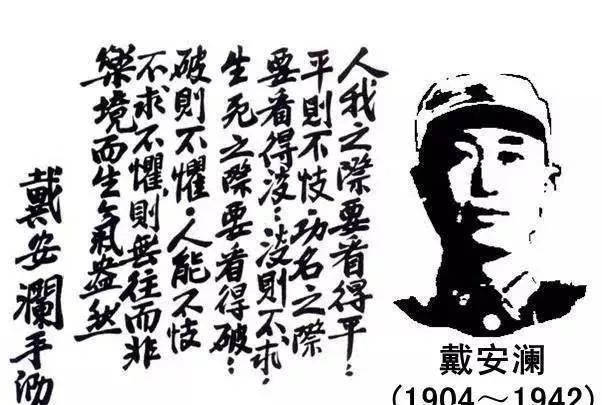 人我之際要看得平：
平則不忮．功名之際
要看得淡：淡則不求．
生死之際要看得破：
破則不懼．人能不忮
不求不懼，則無往而非
樂境而生氣盎然
戴安瀾手泐
戴安澜
(1904～1942)